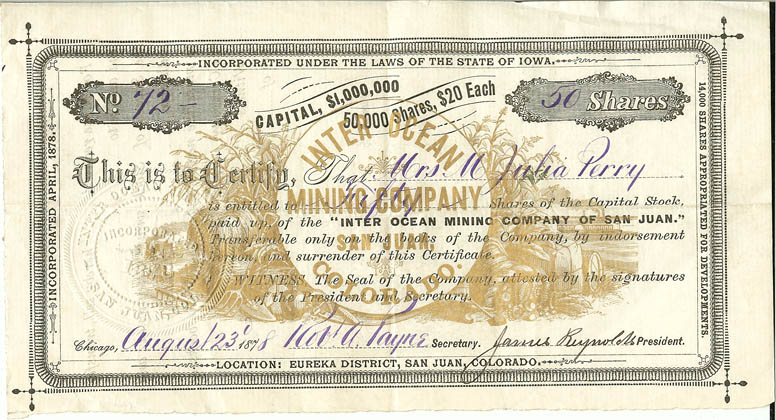 INCORPORATED UNDER THE LAWS OF THE STATE OF IOWA.
No 72 -
CAPITAL, $1,000,000
50,000 Shares, $20 Each
50 Shares
INTER OCEAN
MINING COMPANY
COLORADO.
This is to Certify, That Mrs M Julia Perry
is entitled to Fifty shares of the Capital Stock,
paid up, of the "INTER OCEAN MINING COMPANY OF SAN JUAN."
Transferable only on the books of the Company, by indorsement
hereon, and surrender of this Certificate.
WITNESS The Seal of the Company, attested by the signatures
of the President and Secretary.
Chicago, August 23 1878 Robt A. Payne Secretary. James Reynolds President.
LOCATION: EUREKA DISTRICT, SAN JUAN, COLORADO.
INCORPORATED APRIL, 1878.
14,000 SHARES APPROPRIATED FOR DEVELOPMENTS.